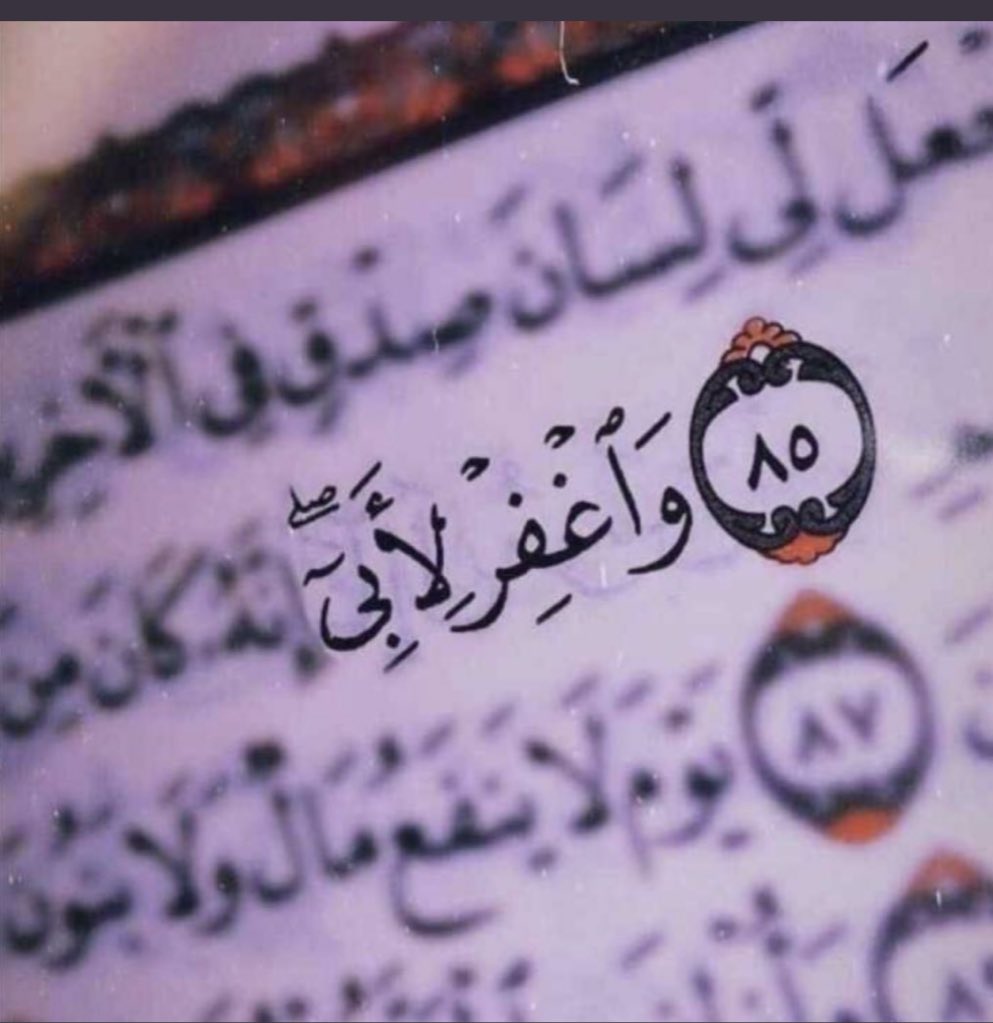 جْعَل لِّى لِسَانَ صِدْقٍ فِى ٱلْآخِرِ
٨٥ وَٱغْفِرْ لِأَبِىٓ ۖ إِنَّهُۥ كَانَ مِنَ
٨٧ يَوْمَ لَا يَنفَعُ مَالٌ وَلَا بَنُونَ